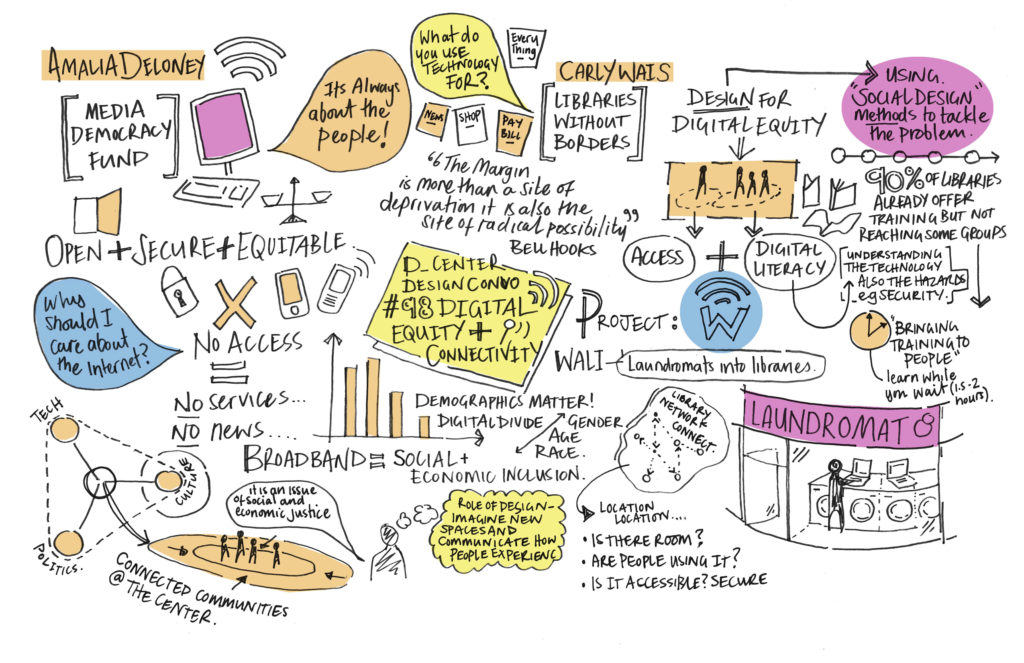 AMALIA DELONEY
MEDIA
DEMOCRACY
FUND
Its Always
about the
people!
What do
you use
TECHNOLOGY
FOR?
Every
Thing
NEWS
SHOP
PAY
BILL
"The Margin
is more than a site of
deprivation it is also the
site of radical possibility"
BELL HOOKS
OPEN + SECURE + EQUITABLE
Why
should I
care about
the Internet?
NO ACCESS
=
No services...
NO news....
D_CENTER
DESIGN CONVO
#98 DIGITAL
EQUITY +
CONNECTIVITY
DEMOGRAPHICS MATTER!
DIGITAL DIVIDE
GENDER
AGE
RACE.
BROADBAND = SOCIAL +
ECONOMIC INCLUSION.
TECH
CULTURE
POLITICS.
CONNECTED COMMUNITIES
@ THE CENTER.
it is an issue
of social and
economic justice
ROLE OF DESIGN-
IMAGINE NEW
SPACES AND
COMMUNICATE HOW
PEOPLE EXPERIENCE
CARLY WAIS
LIBRARIES
WITHOUT
BORDERS
DESIGN FOR
DIGITAL EQUITY
USING
"SOCIAL DESIGN"
methods to tackle
the problem.
ACCESS
+
DIGITAL
LITERACY
90% OF LIBRARIES
ALREADY OFFER
TRAINING BUT NOT
REACHING SOME GROUPS
UNDERSTANDING
THE TECHNOLOGY
ALSO THE HAZARDS
eg SECURITY.
"BRINGING
TRAINING TO
PEOPLE"
learn while
you wait (1.5-2
hours).
PROJECT:
W
WALI - Laundromats into libraries.
LIBRARY
NETWORK
CONNECT.
or
LOCATION
LOCATION....
• IS THERE ROOM?
• ARE PEOPLE USING IT?
• IS IT ACCESSIBLE? SECURE
LAUNDROMAT